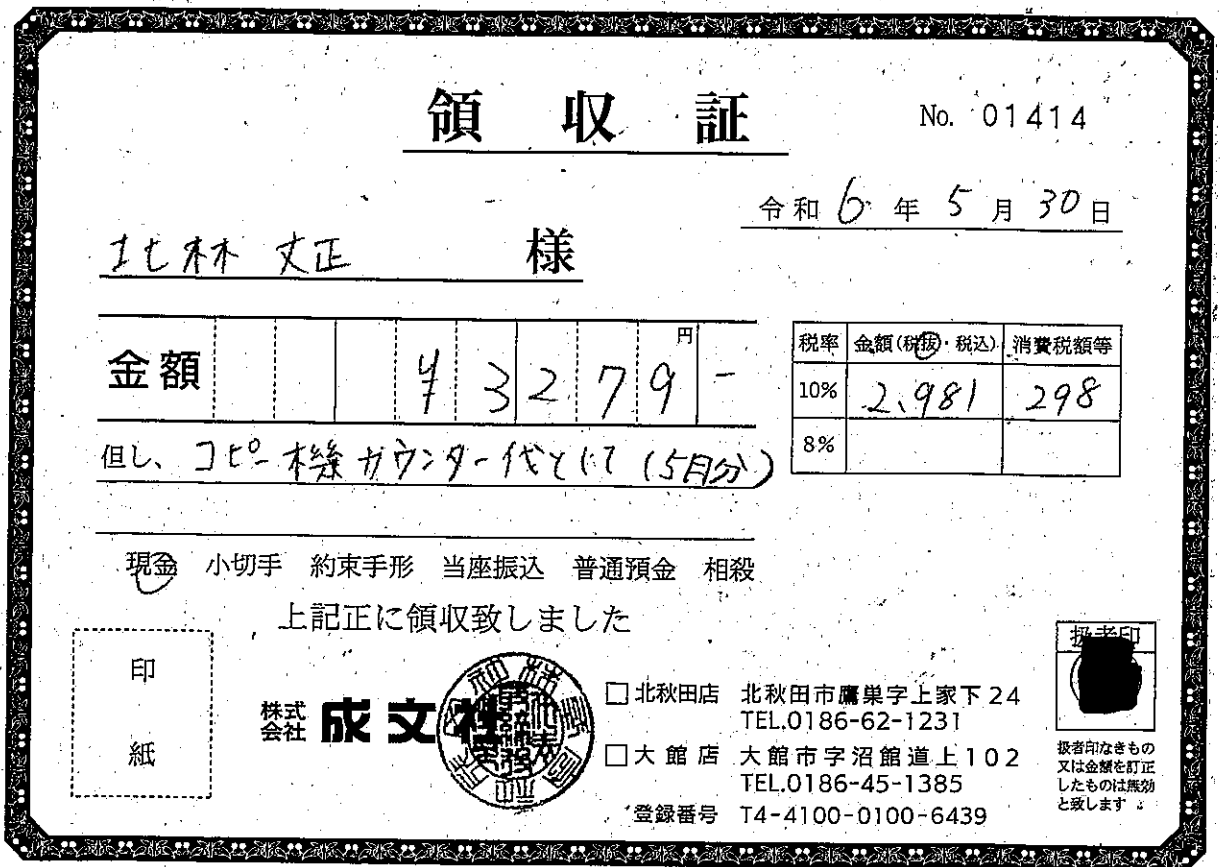 領収証
No. 01414
令和 6 年 5 月 30 日
北林 丈正 様
金額 ¥3279- 円
税率 金額(税抜・税込) 消費税額等
10% 2,981 298
8%
但し、コピー機カウンター代として (5月分)
現金 小切手 約束手形 当座振込 普通預金 相殺
上記正に領収致しました
印紙
株式会社 成文社
□北秋田店 北秋田市鷹巣字上家下24
TEL.0186-62-1231
□大館店 大館市字沼館道上102
TEL.0186-45-1385
登録番号 T4-4100-0100-6439
扱者印
扱者印なきもの
又は金額を訂正
したものは無効
と致します